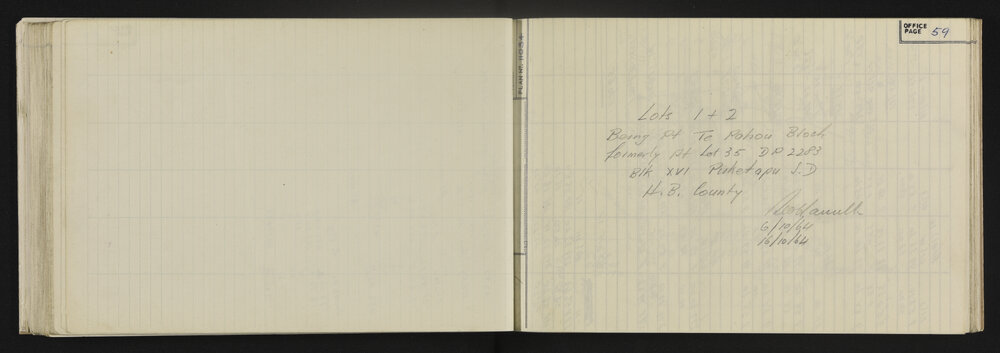 OFFICE PAGE 59
PLAN No. 11054
Lots 1 + 2
Being Pt Te Pahou Block
formerly Pt Lot 35 DP 2283
Blk XVI Puketapu S.D
H.B. County
6/10/64
16/10/64